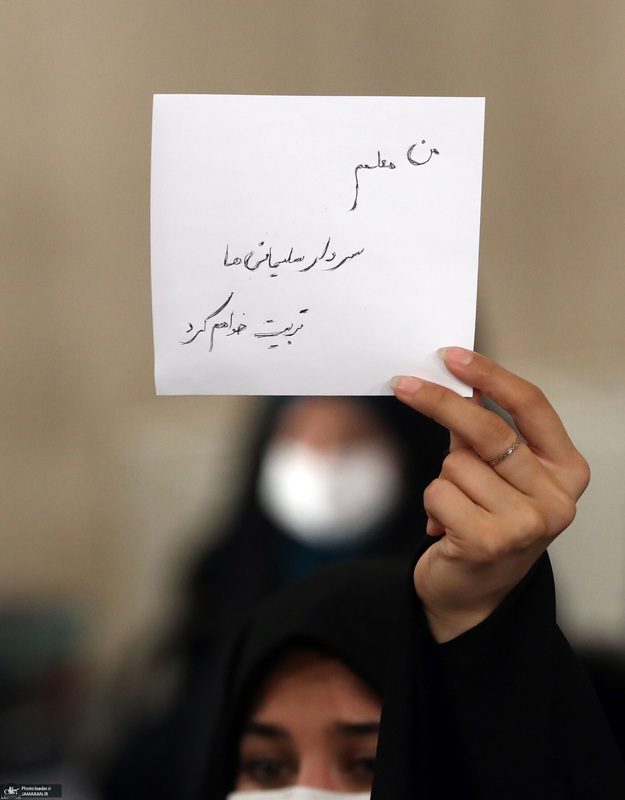 من معلمم
سردار سلیمانی ها
تربیت خواهم کرد
Photo:leader.ir
JAMARAN.IR